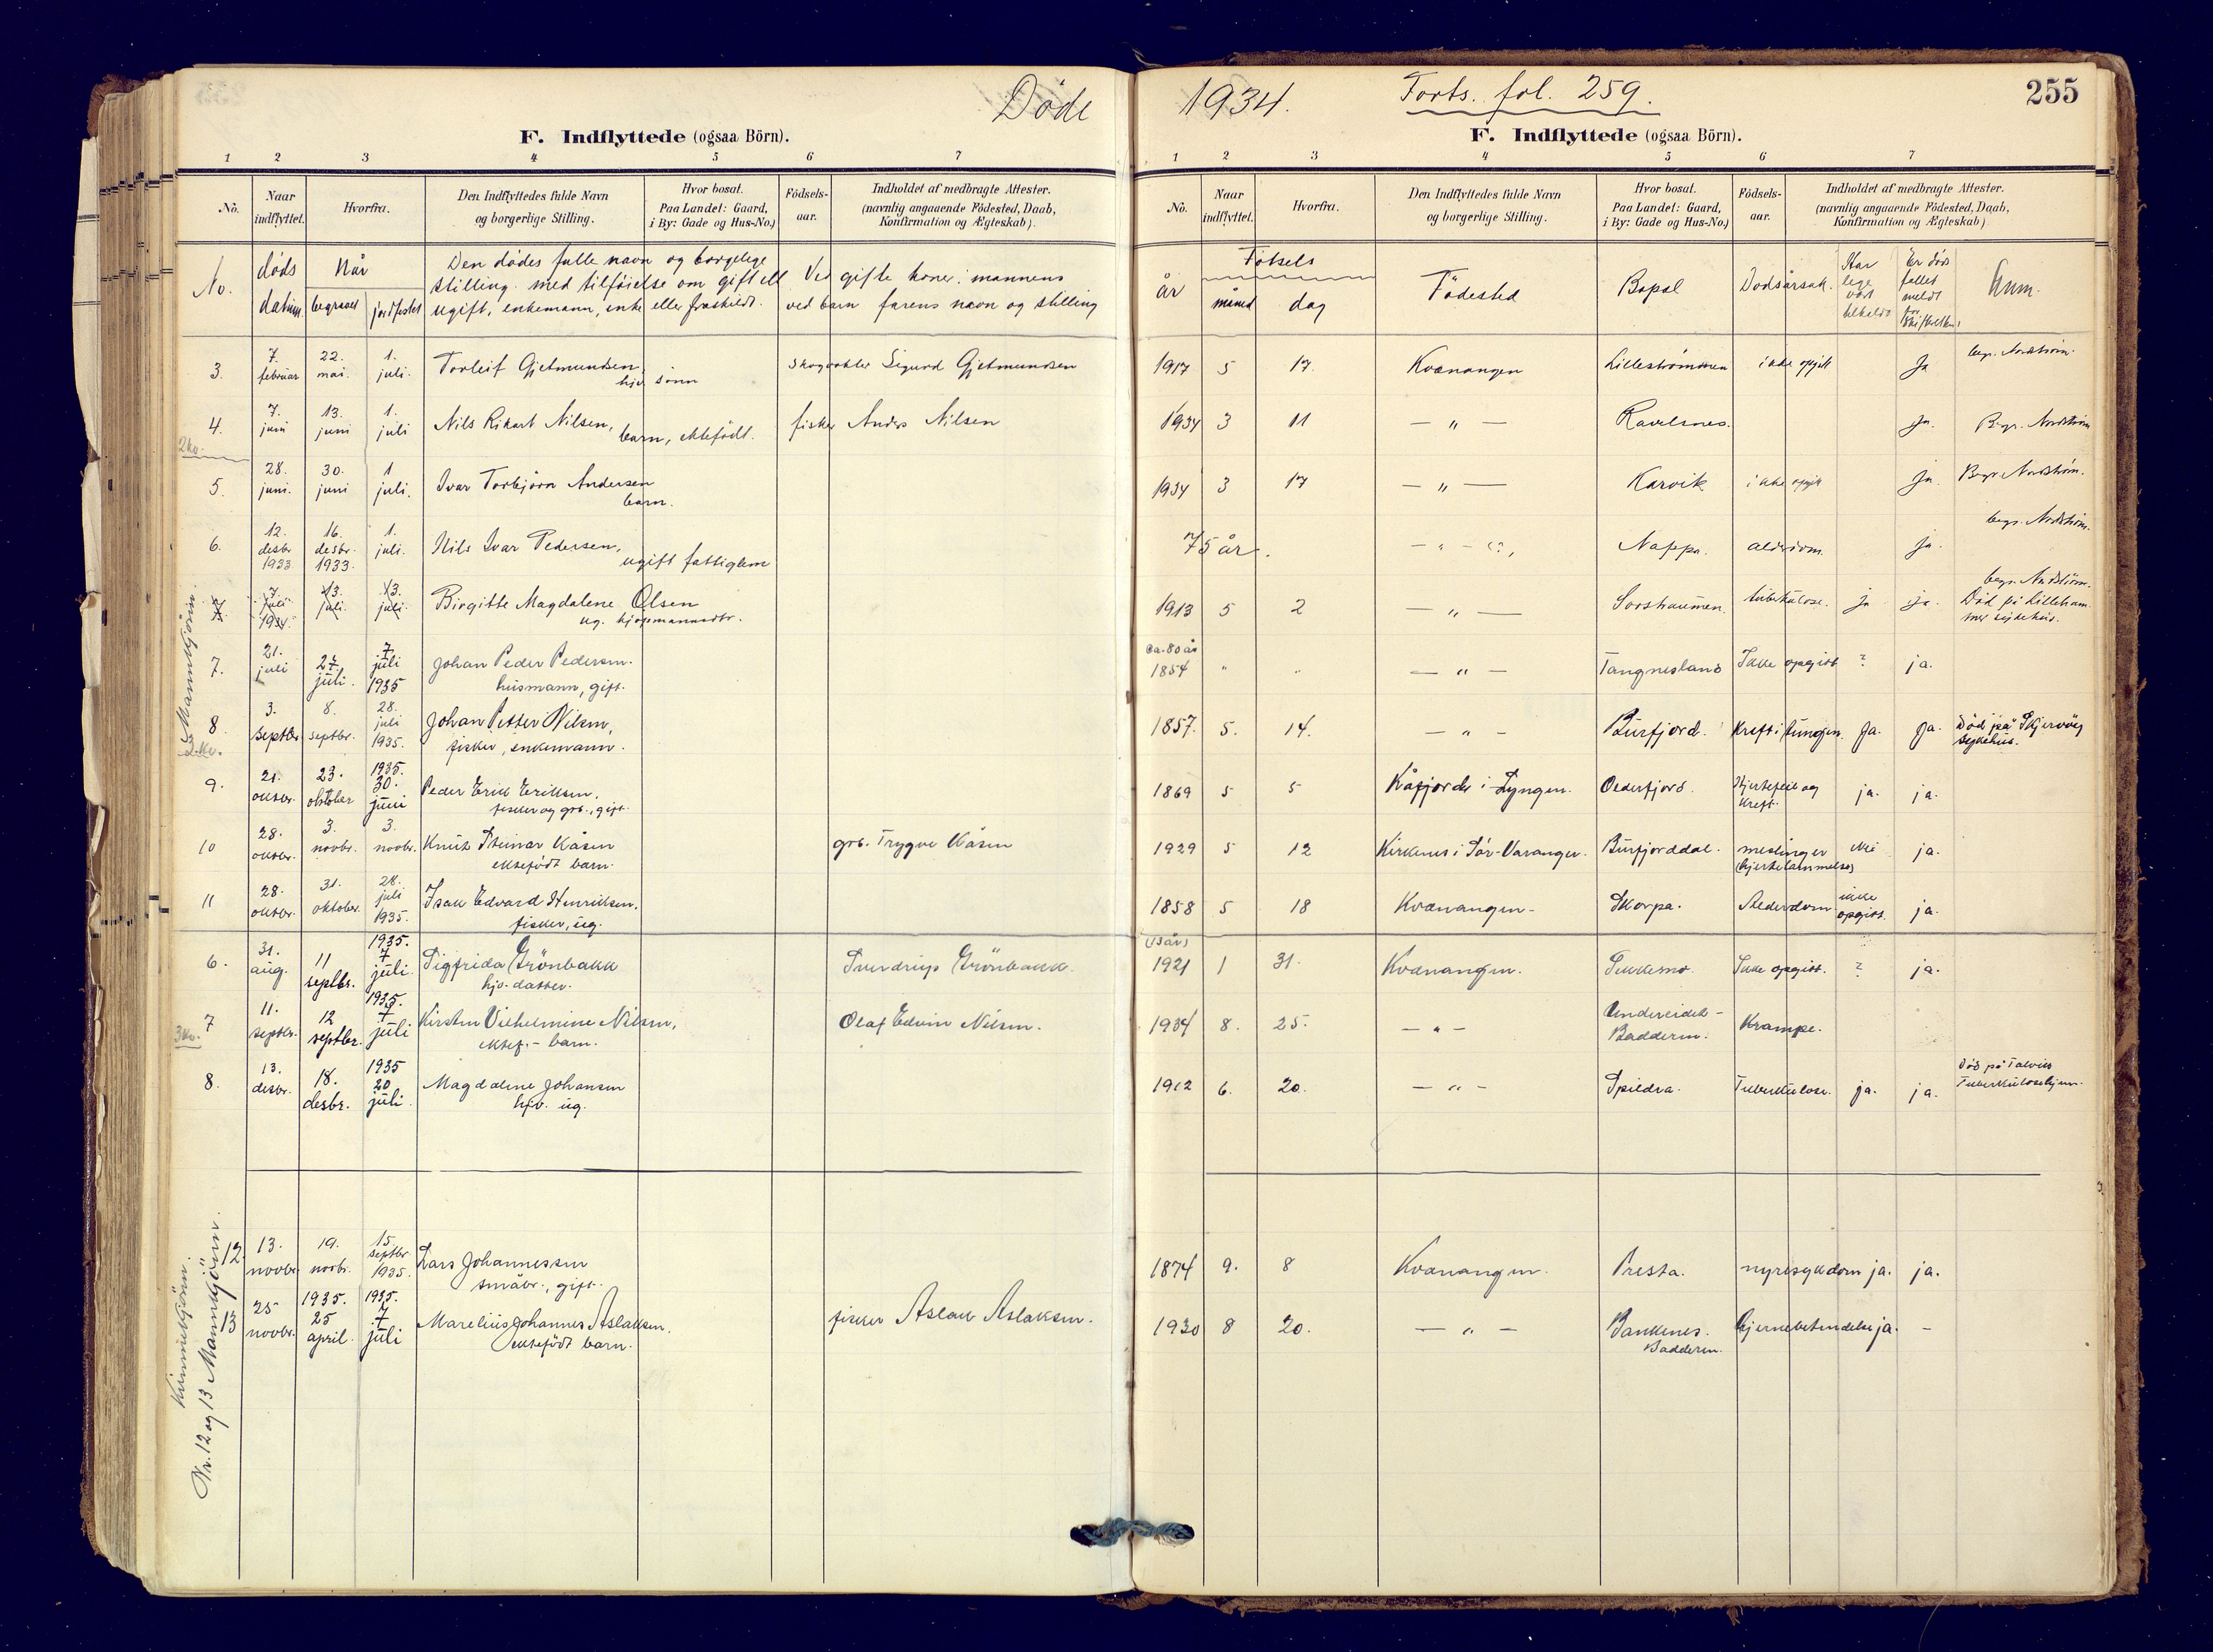 Døde
1934.
Forts. fol. 259.
255
F. Indflyttede (ogsaa Börn).
1 2 3 4 5 6 7
No. Naar indflyttet. Hvorfra. Den Indflyttedes fulde Navn og borgerlige Stilling. Hvor bosat. Paa Landet: Gaard, i By: Gade og Hus-No.) Födsels-aar. Indholdet af medbragte Attester. (navnlig angaaende Födested, Daab, Konfirmation og Ægteskab).
F. Indflyttede (ogsaa Börn).
1 2 3 4 5 6 7
No. Naar indflyttet. Hvorfra. Den Indflyttedes fulde Navn og borgerlige Stilling. Hvor bosat. Paa Landet: Gaard, i By: Gade og Hus-No.) Födsels-aar. Indholdet af medbragte Attester. (navnlig angaaende Födested, Daab, Konfirmation og Ægteskab)
No. døds datum. Når begravet jordfestet Den dødes fulle navn og borgelige stilling med tilføielse om gift ell ugift, enkemann, enke eller fraskildt. Ved gifte koner: mannens ved barn farens navn og stilling
Fötsels år måned dag Födested Bopel Dødsårsak. Har lege vært tilkaldt Er døds fallet meldt for skifteretten Anm.
3. 7. februar 22. mai. 1. juli. Torleif Gjetmundsen, hjv. sønn Sigurd Gjetmundsen 1917 5 17. Kvænangen Lillestrømmen ikke opgitt Ja begr. Nordstrøm.
4. 7. juni 13. juni 1. juli Nils Rikart Nilsen, barn, ektefødt. fisker Anders Nilsen 1934 3 11 — " — Ja. Begr. Nordstrøm
2 kv.
5. 28. juni. 30. juni 1 juli. Ivar Torbjørn Andersen barn. 1934 3 17 — " — Karvik ikke opgitt Ja. Begr. Nordstrøm.
6. 12. desbr 1933 16. desbr. 1933. 1. juli. Nils Ivar Pedersen, ugift fattiglem 75 år. — " — (?), Nappa. alderdom. Ja. begr. Nordstrøm.
7. 7. juli 1934. 13. juli. 13. juli. Birgitte Magdalene Olsen ug. 1913 5 2 — " — tuberkulose. Ja Ja. begr. Nordstrøm. Død på Lilleham mer sykehus.
Mannkjønn.
7. 21. juli 27. juli. 7. juli 1935 Johan Peder Pedersen. husmann, gift. ca. 80 år 1854 " " — " — Tangnesland Ikke opgitt ? ja.
8 3. septbr. 8. septbr. 28. juli 1935. Johan Petter Nilsen, fisker, enkemann. 1857. 5. 14. — " — Burfjord. Kreft i tungen. Ja. Ja. Død på Skjervøy sykehus.
9. 21. oktbr. 23. oktober 1935. 30. juni Peder Erik Eriksen. fisker og grb., gift. 1869 5 5 Kåfjord i Lyngen. Olderfjord. Hjertefeil og kreft. ja. ja.
10 28. oktbr. 3. novbr. 3. novbr. Knut Steinar Kåsen ektefödt barn. grb. Trygve Kåsen 1929 5 12 Kirkenes i Sör-Varanger. Burfjorddal. meslinger (hjertelammelse) Nei ja.
11 28. oktbr. 31. oktober. 28. juli 1935. Isak Edvard Henriksen. fisker, ug. 1858 5 18 Kvænangen. Skorpa. Alderdom ikke opgitt. ja.
6. 31. aug. 11 septbr. 1935. 7 juli. Sigfrida Grönbakk hjv. datter. Sverdrup Grönbakk. (13 år) 1921 1 31. Kvænangen. Sekkemo. Ikke opgitt. ? ja.
7 11. septbr. 12 septbr. 1935. 7 juli Kirsten Vilhelmine Nilsen, ektef. barn. Olaf Edvin Nilsen. 1934 8. 25. — " — Undereidet - Badderen. Krampe.
3 kv.
8. 13. desbr. 18. desbr. 1935 20 juli. Magdalene Johansen hjv. ug. 1912 6. 20. — " — Spildra. Tuberkulose. ja. ja. Död på Talvik Tuberkulosehjem.
12. 13. novbr. 19. novbr. 15. septbr 1935. Lars Johannessen småbr., gift. 1874 9. 8 Kvænangen. Presta. nyresykdom ja. ja.
13 25 novbr. 1935. 25 april. 1935. 7 juli Marelius Johannes Aslaksen. ektefödt barn. fisker Aslak Aslaksen. 1930 8 20. — " — Bankenes. Badderen. hjernebetendelse ja. -
Kvinnekjönn.
Nr. 12 og 13 Mannkjönn.